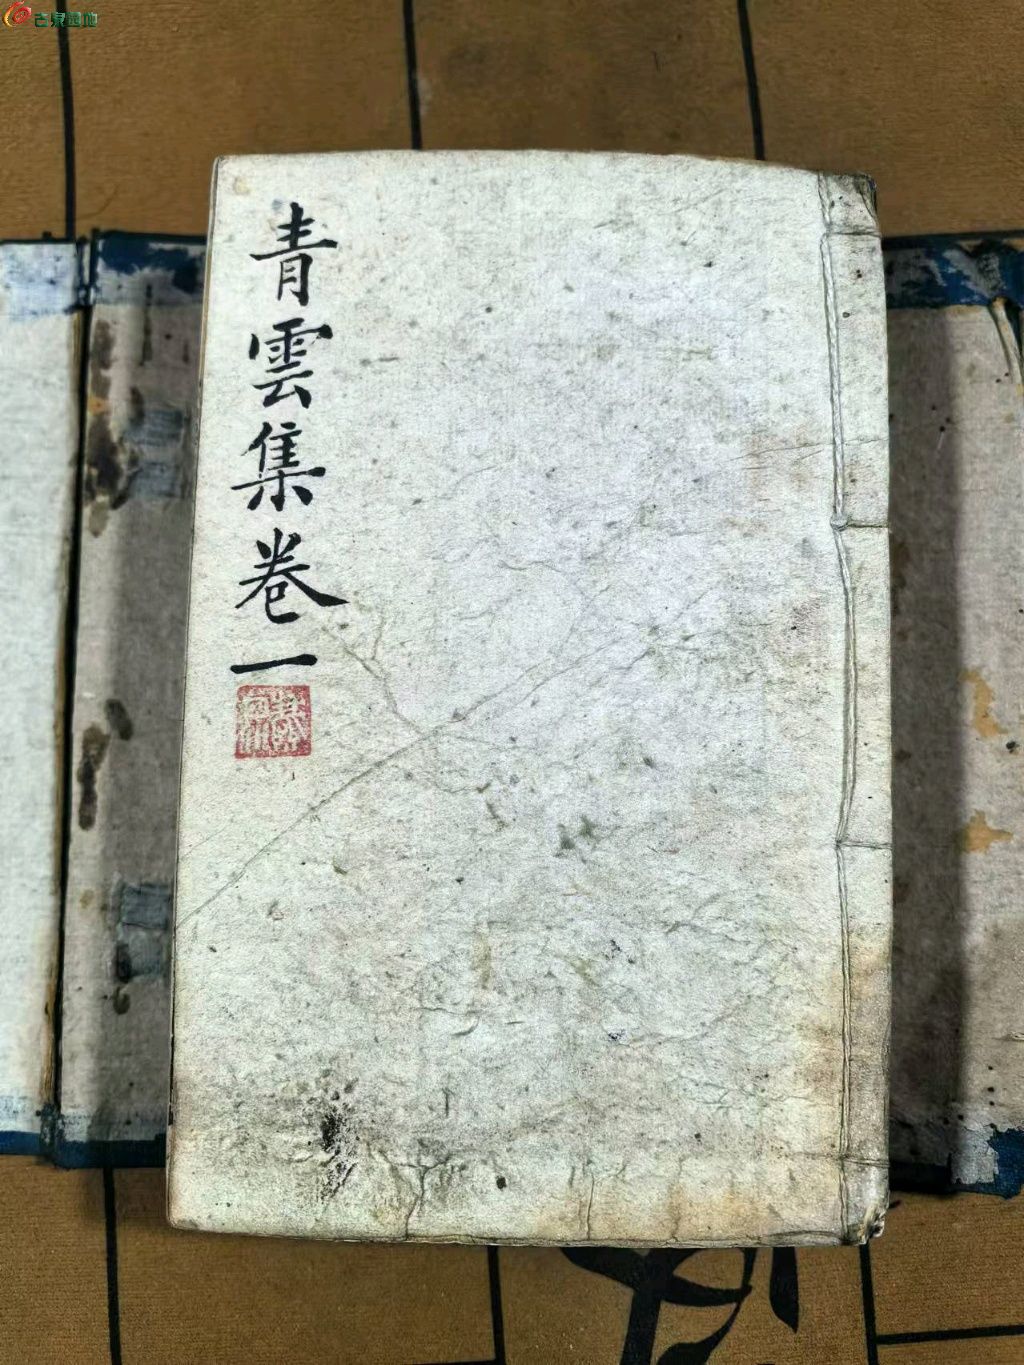 古泉园地
青雲集卷一